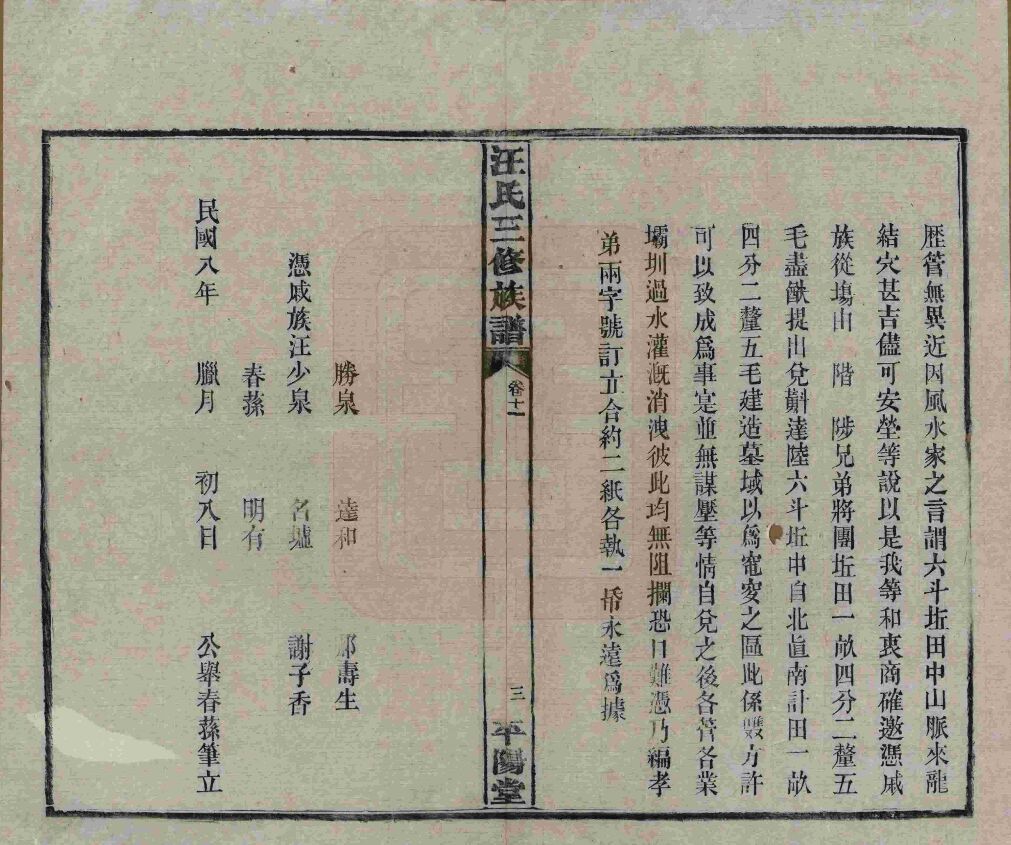 歷管無異近因風水家之言謂六斗坵田中山脈來龍
結穴甚吉儘可安塋等說以是我等和衷商確邀憑戚
族從塲由 階 陟兄弟將團坵田一畝四分二釐五
毛盡數提出兌斢達陸六斗坵中自北直南計田一畝
四分二釐五毛建造墓域以爲窀穸之區此係雙方許
可以致成爲事寔並無謀壓等情自兌之後各管各業
壩圳過水灌溉消洩彼此均無阻攔恐口難憑乃編孝
弟兩字號訂立合約二紙各執一帋永遠爲據
汪氏三修族譜
卷十一
三
平陽堂
勝泉 達和 壽生
憑戚族汪少泉 名墟 謝子香
春蓀 明有
民國八年 臘月 初八日 公舉春蓀筆立